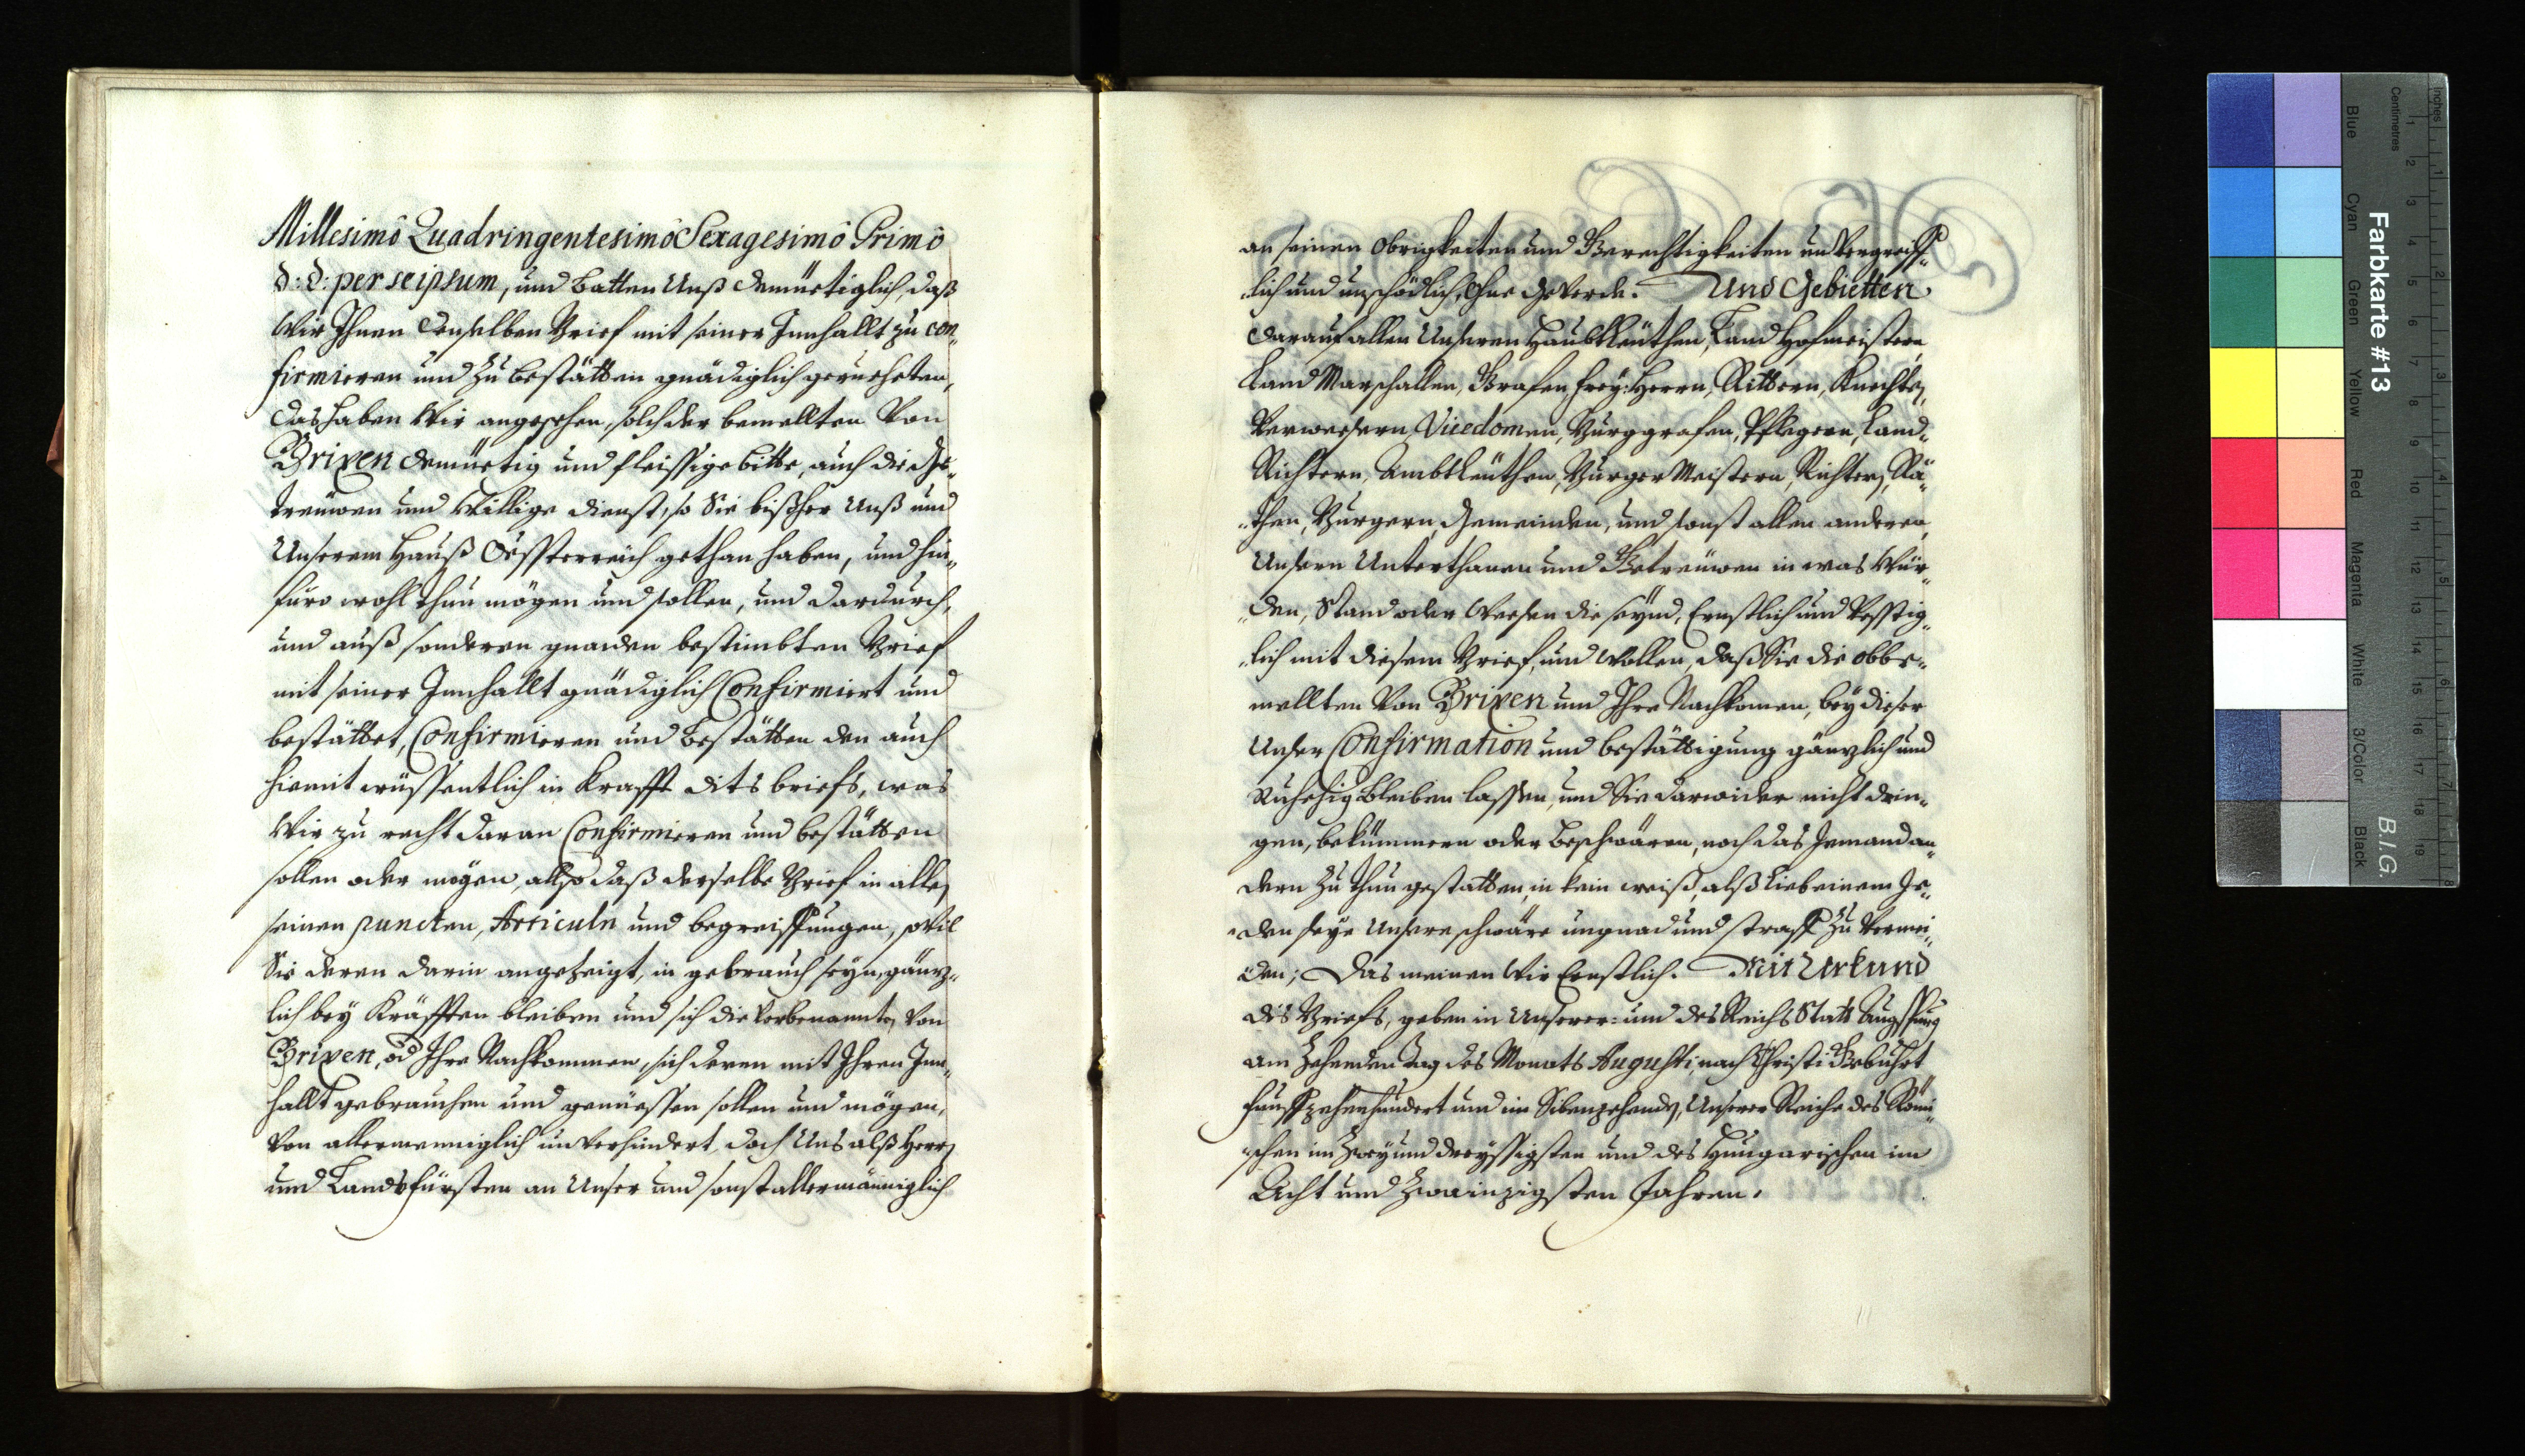 Millesimô Quadringentesimô Sexagesimô Primô
d: d: per seipsum, und batten Unß demüetiglich, daß
Wir Ihnen denselben Brief mit seiner Innhallt zu con„
firmieren und zu bestätten gnädiglich gerueheten,
das haben Wir angesehen, solch der bemellten Von
Brixen demüetig und fleissige bitte, auch die Ge„
treüwen und Willige dienst, so Sie bißher Unß und
Unserem Hauß Össterreich gethan haben, und hin„
füro wohl thun mögen und sollen, und dardurch,
und auß sonderen gnaden bestimbten Brief
mit seiner Innhallt gnädiglich Confirmiert und
bestättet, Confirmieren und bestätten den auch
hiemit wüssentlich in Krafft dits briefs, was
Wir zu recht daran Confirmieren und bestätten
sollen oder mögen, allso daß derselbe Brief in allen
seinen puncten, Articuln und begreiffungen, sovil
Sie deren darin angezeigt, in gebrauch seyn, gäntz„
lich bey Kräfften bleiben und sich die Vorbenannten Von
Brixen, od Ihre Nachkommen, sich deren mit Ihren Inn„
hallt gebrauchen und genüessen sollen und mögen,
Von allermenniglich unverhindert, doch Uns alß Herrn
und Landsfürsten an Unser und sonst allermänniglich
an seinen Obrigkeiten und Gerechtigkeiten unvergreiff„
„lich und unschödlich, ohne Geverde. Und Gebietten
darauf allen Unseren Haubtleüthen, Land Hofmeistern,
Land Marschallen, Grafen, frey: Herren, Rittern, Knechten,
Verwesern, Vicedomen, Burggrafen, Pflegern, Land„
Richtern, Ambtleüthen, Burger Meistern, Richtern, Rä„
„then, Burgern, Gemeinden, und sonst allen anderen,
Unsern Unterthanen und Getreüwen in was Wür„
„den, Stand oder Wesen die seynd, Ernstlich und Vesstig„
„lich mit diesem Brief, und wollen, daß Sie die obbe„
mellten Von Brixen und Ihre Nachkomen, bey dieser
Unser Confirmation und bestättigung gäntzlich und
Ruhehig bleiben lassen, und Sie darwider nicht drin„
gen, bekümmern oder beschwären, noch das Jemand an„
dern zu thun gestatten, in kein weiß, alß lieb einem Je„
„den seye Unsere schwäre ungnad und straff zu vermei„
„den; Das meinen Wir Ernstlich. Mit Urkund
dis Briefs, geben in Unserer: und des Reichs Statt Augspurg
am Zehenden Tag des Monats Augusti, nach Christi Gebuhrt
fünffzehenhundert und im Sibenzehenden, Unserer Reiche des Römi„
„schen im Zwey und dreyssigsten und des Hungarischen im
Acht und Zwainzigsten Jahren.
Farbkarte #13
B.I.G.
Blue
Cyan
Green
Yellow
Red
Magenta
White
3/Color
Black
Centimetres
Inches
1 2 3 4 5 6 7 8 9 10 11 12 13 14 15 16 17 18 19
1 2 3 4 5 6 7 8